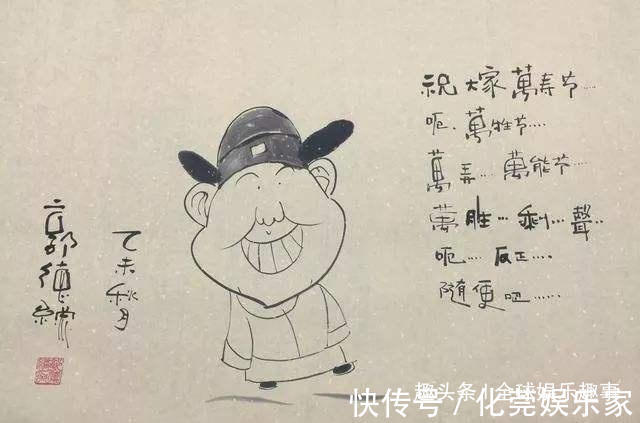 祝大家萬寿节....
呃、萬牲节....
萬弄...萬能节....
萬胜...剩...聲..
呃....反正....
隨便吧......
乙未秋月
趣头条 / 全球娱乐趣事
快传号 / 化莞娱乐家